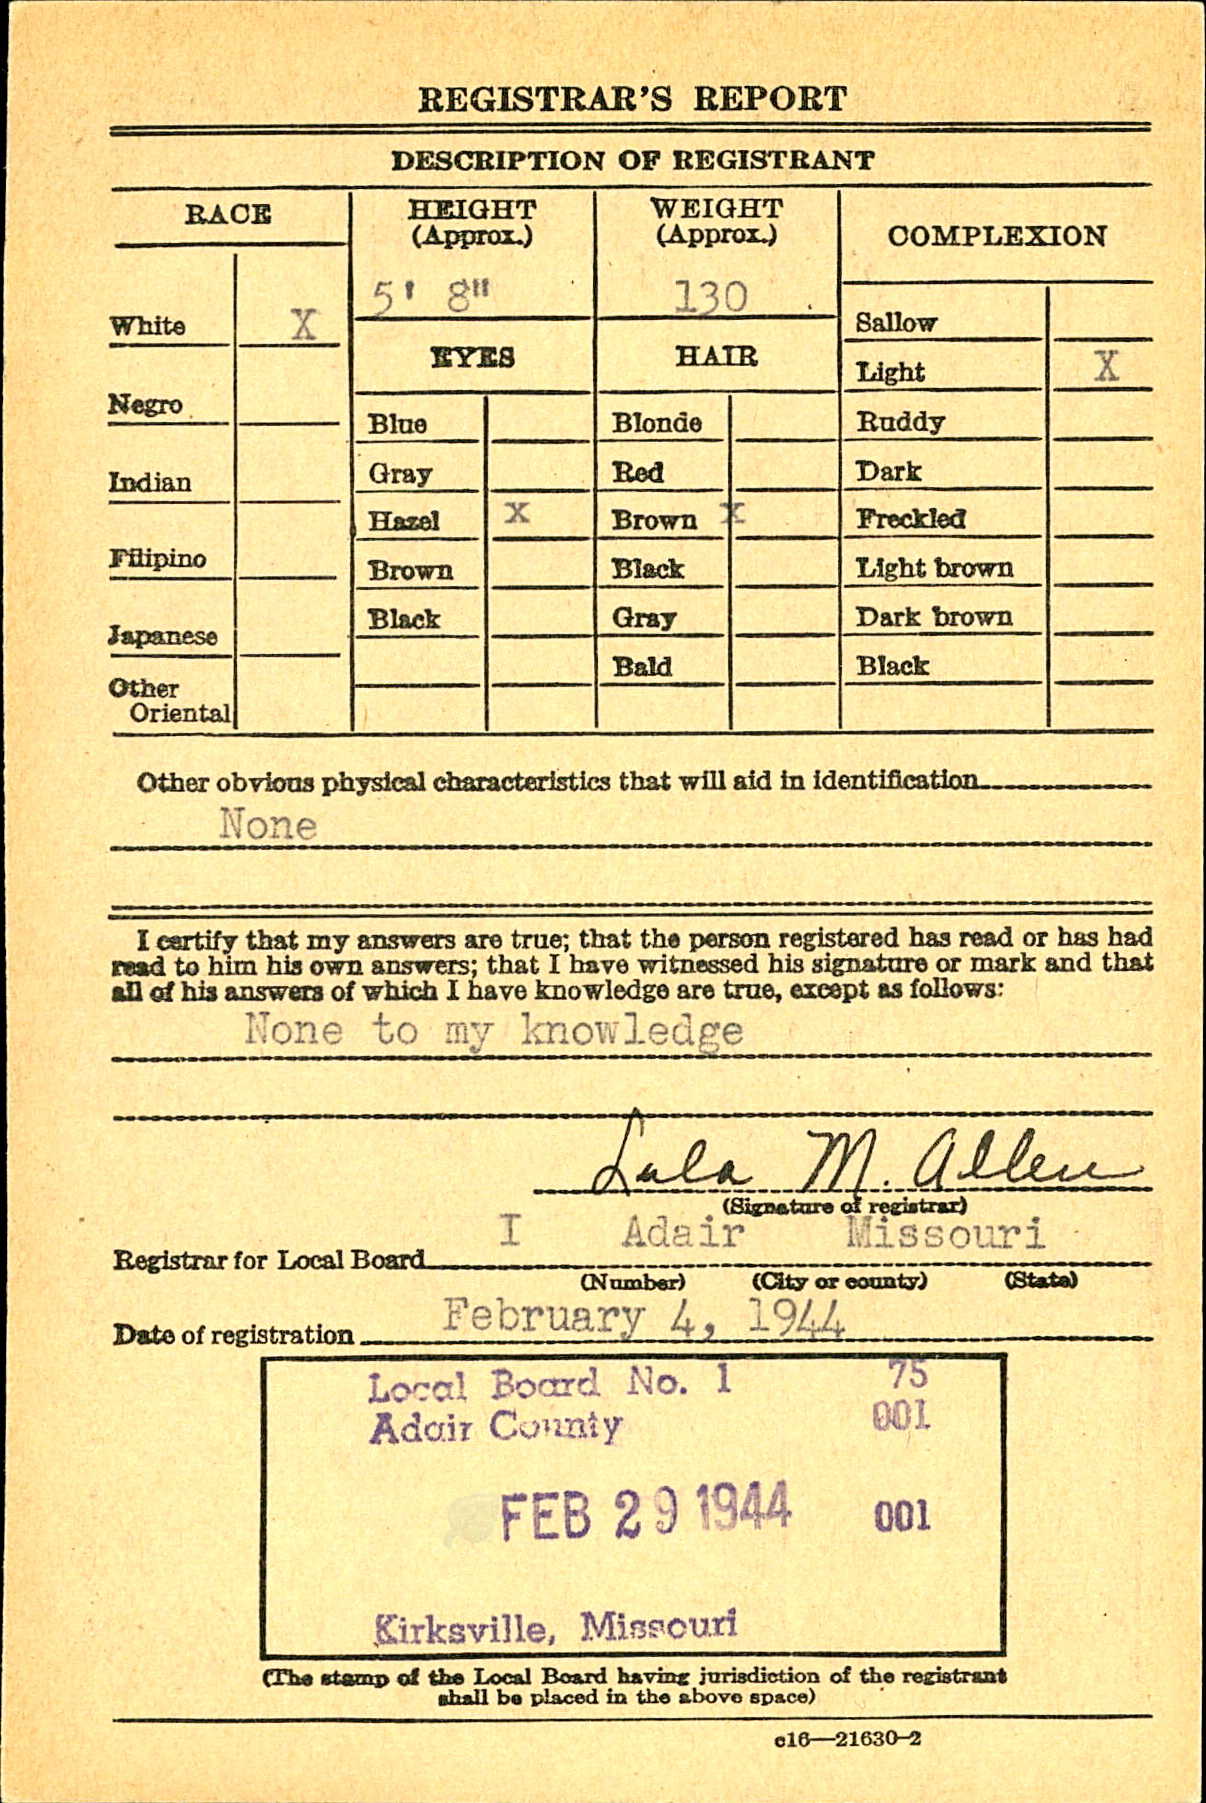 REGISTRAR'S REPORT
DESCRIPTION OF REGISTRANT
RACE
HEIGHT
(Approx.)
WEIGHT
(Approx.)
COMPLEXION
5' 8"
130
White X
Sallow
EYES
HAIR
Light X
Negro
Blue
Blonde
Ruddy
Indian
Gray
Red
Dark
Hazel x
Brown x
Freckled
Filipino
Brown
Black
Light brown
Japanese
Black
Gray
Dark brown
Bald
Black
Other
Oriental
Other obvious physical characteristics that will aid in identification
None
I certify that my answers are true; that the person registered has read or has had
read to him his own answers; that I have witnessed his signature or mark and that
all of his answers of which I have knowledge are true, except as follows:
None to my knowledge
Lula M. Allen
(Signature of registrar)
Registrar for Local Board I Adair Missouri
(Number) (City or county) (State)
Date of registration February 4, 1944
Local Board No. 1 75
Adair County 001
FEB 29 1944 001
Kirksville, Missouri
(The stamp of the Local Board having jurisdiction of the registrant
shall be placed in the above space)
c16—21630-2